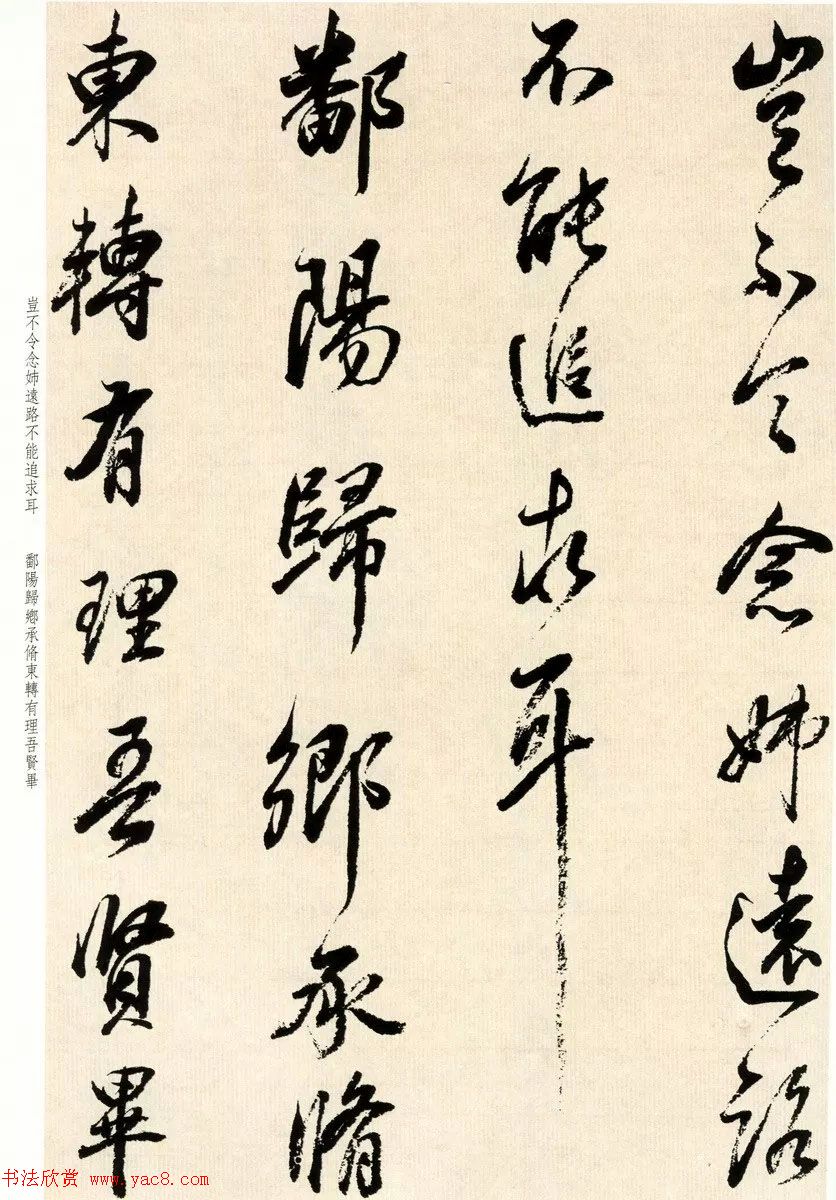 豈不令念姊遠路
不能追求耳
鄱陽歸鄉承脩
東轉有理吾賢畢
豈不令念姊遠路不能追求耳 鄱陽歸鄉承脩東轉有理吾賢畢
书法欣赏 www.yac8.com